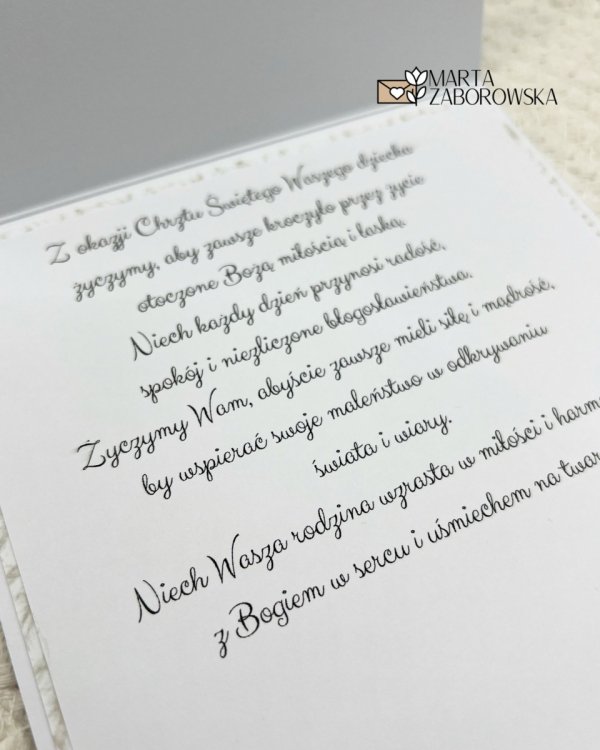 MARTA
ZABOROWSKA
Z okazji Chrztu Świętego Waszego dziecka
życzymy, aby zawsze kroczyło przez życie
otoczone Bożą miłością i łaską.
Niech każdy dzień przynosi radość,
spokój i niezliczone błogosławieństwa.
Życzymy Wam, abyście zawsze mieli siłę i mądrość,
by wspierać swoje maleństwo w odkrywaniu
świata i wiary.
Niech Wasza rodzina wzrasta w miłości i
z Bogiem w sercu i uśmiechem na